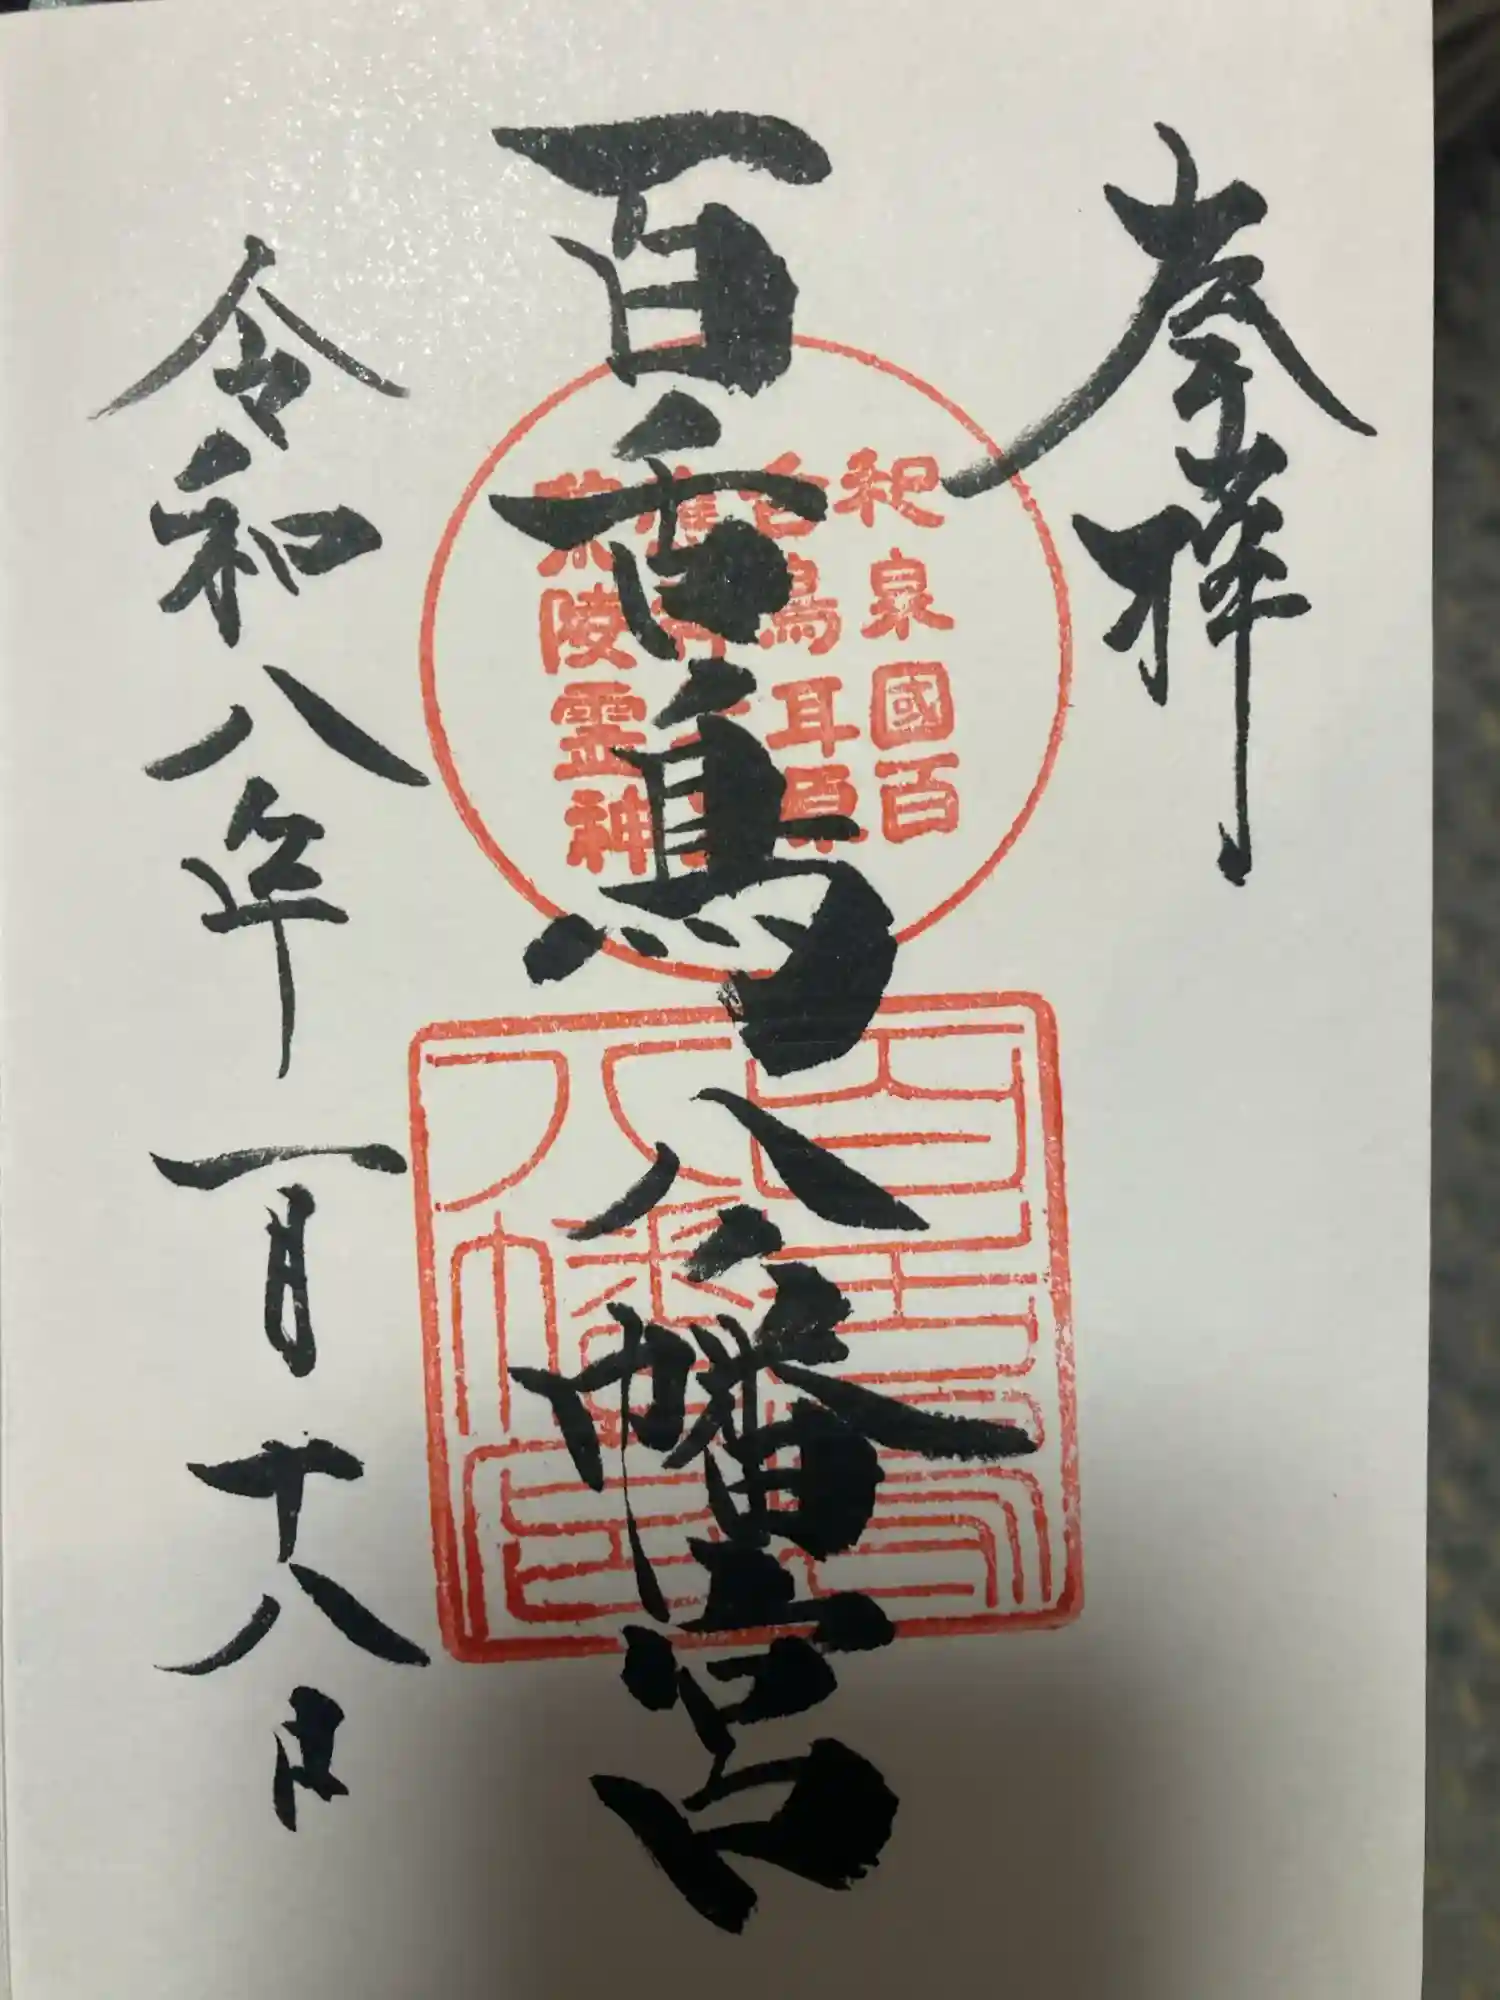 奉拝
百舌鳥八幡宮
令和八年一月十八日
和泉國百
舌鳥耳原
陵霊神
百舌鳥
八幡宮